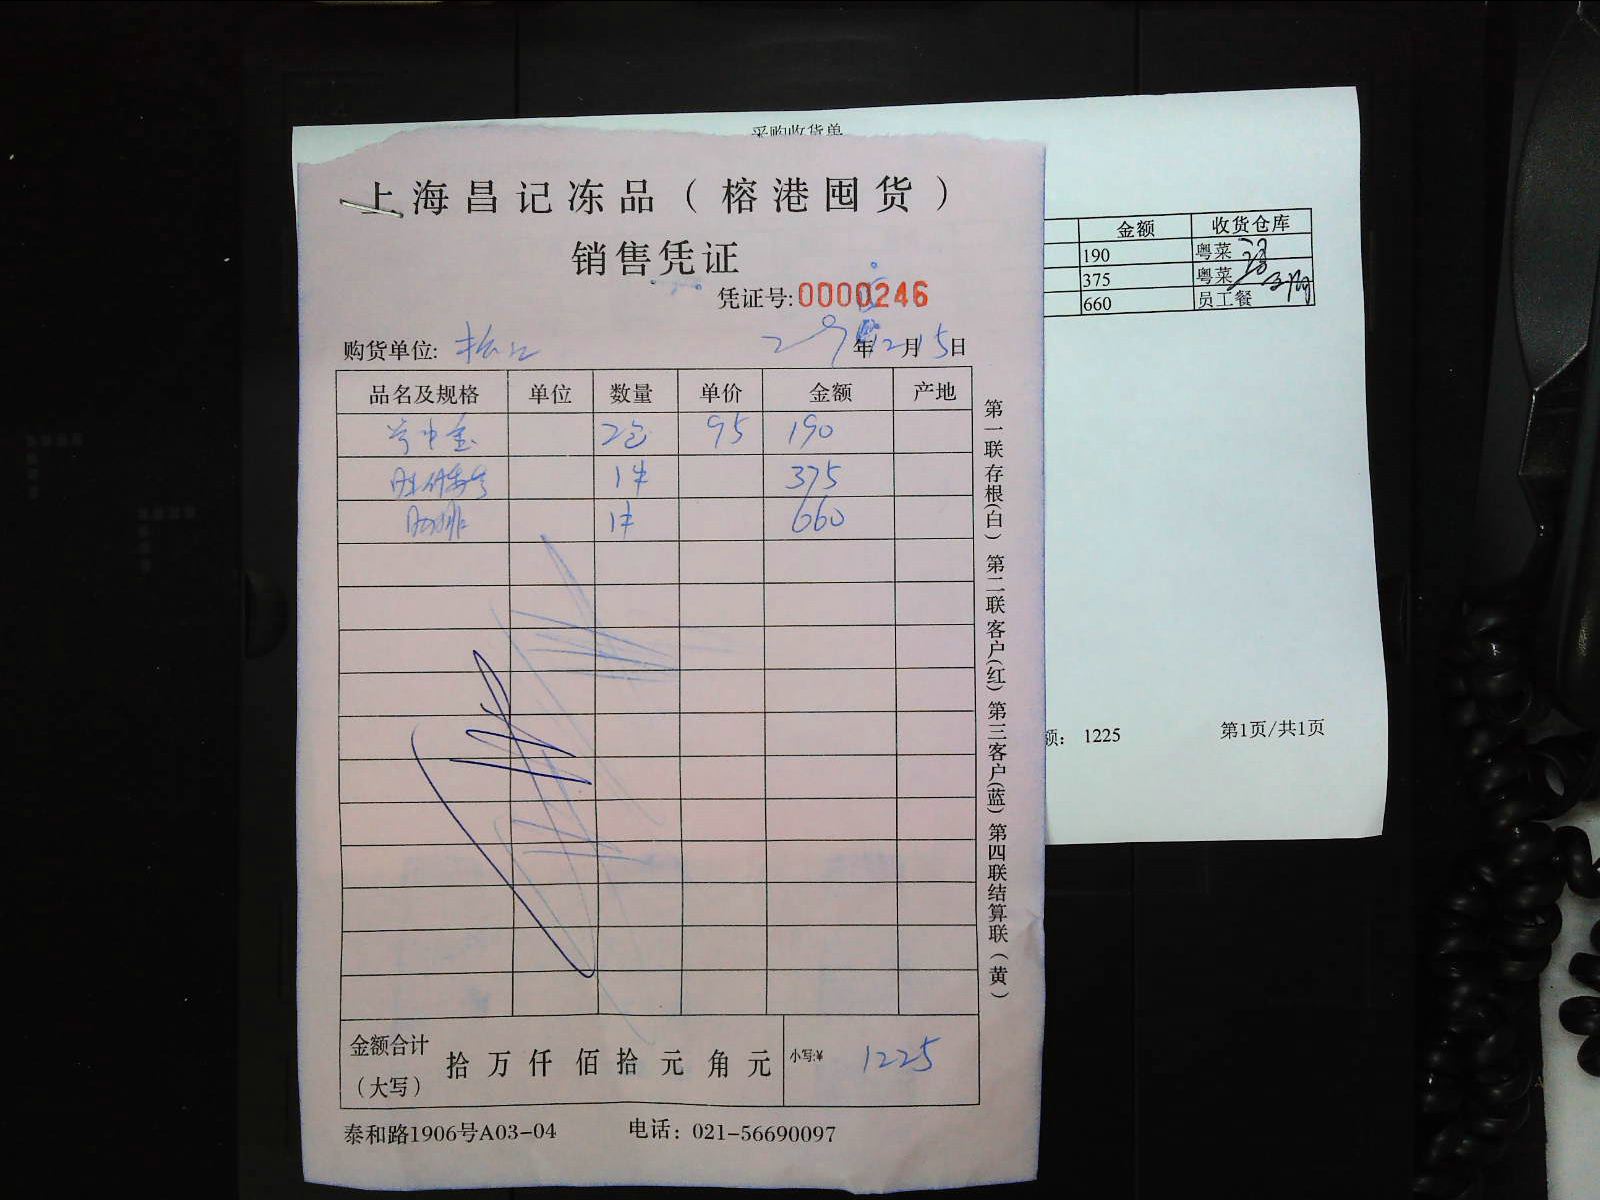 采购收货单
上海昌记冻品（榕港囤货）
销售凭证
凭证号:0000246
购货单位: 松江 年12月15日
品名及规格 单位 数量 单价 金额 产地
2包 95 190
1件 375
1件 660
金额合计（大写） 拾 万 仟 佰 拾 元 角 元 小写:¥ 1225
泰和路1906号A03-04 电话：021-56690097
第一联存根(白) 第二联客户(红) 第三客户(蓝) 第四联结算联(黄)
金额 收货仓库
190 粤菜
375 粤菜
660 员工餐
额： 1225 第1页/共1页